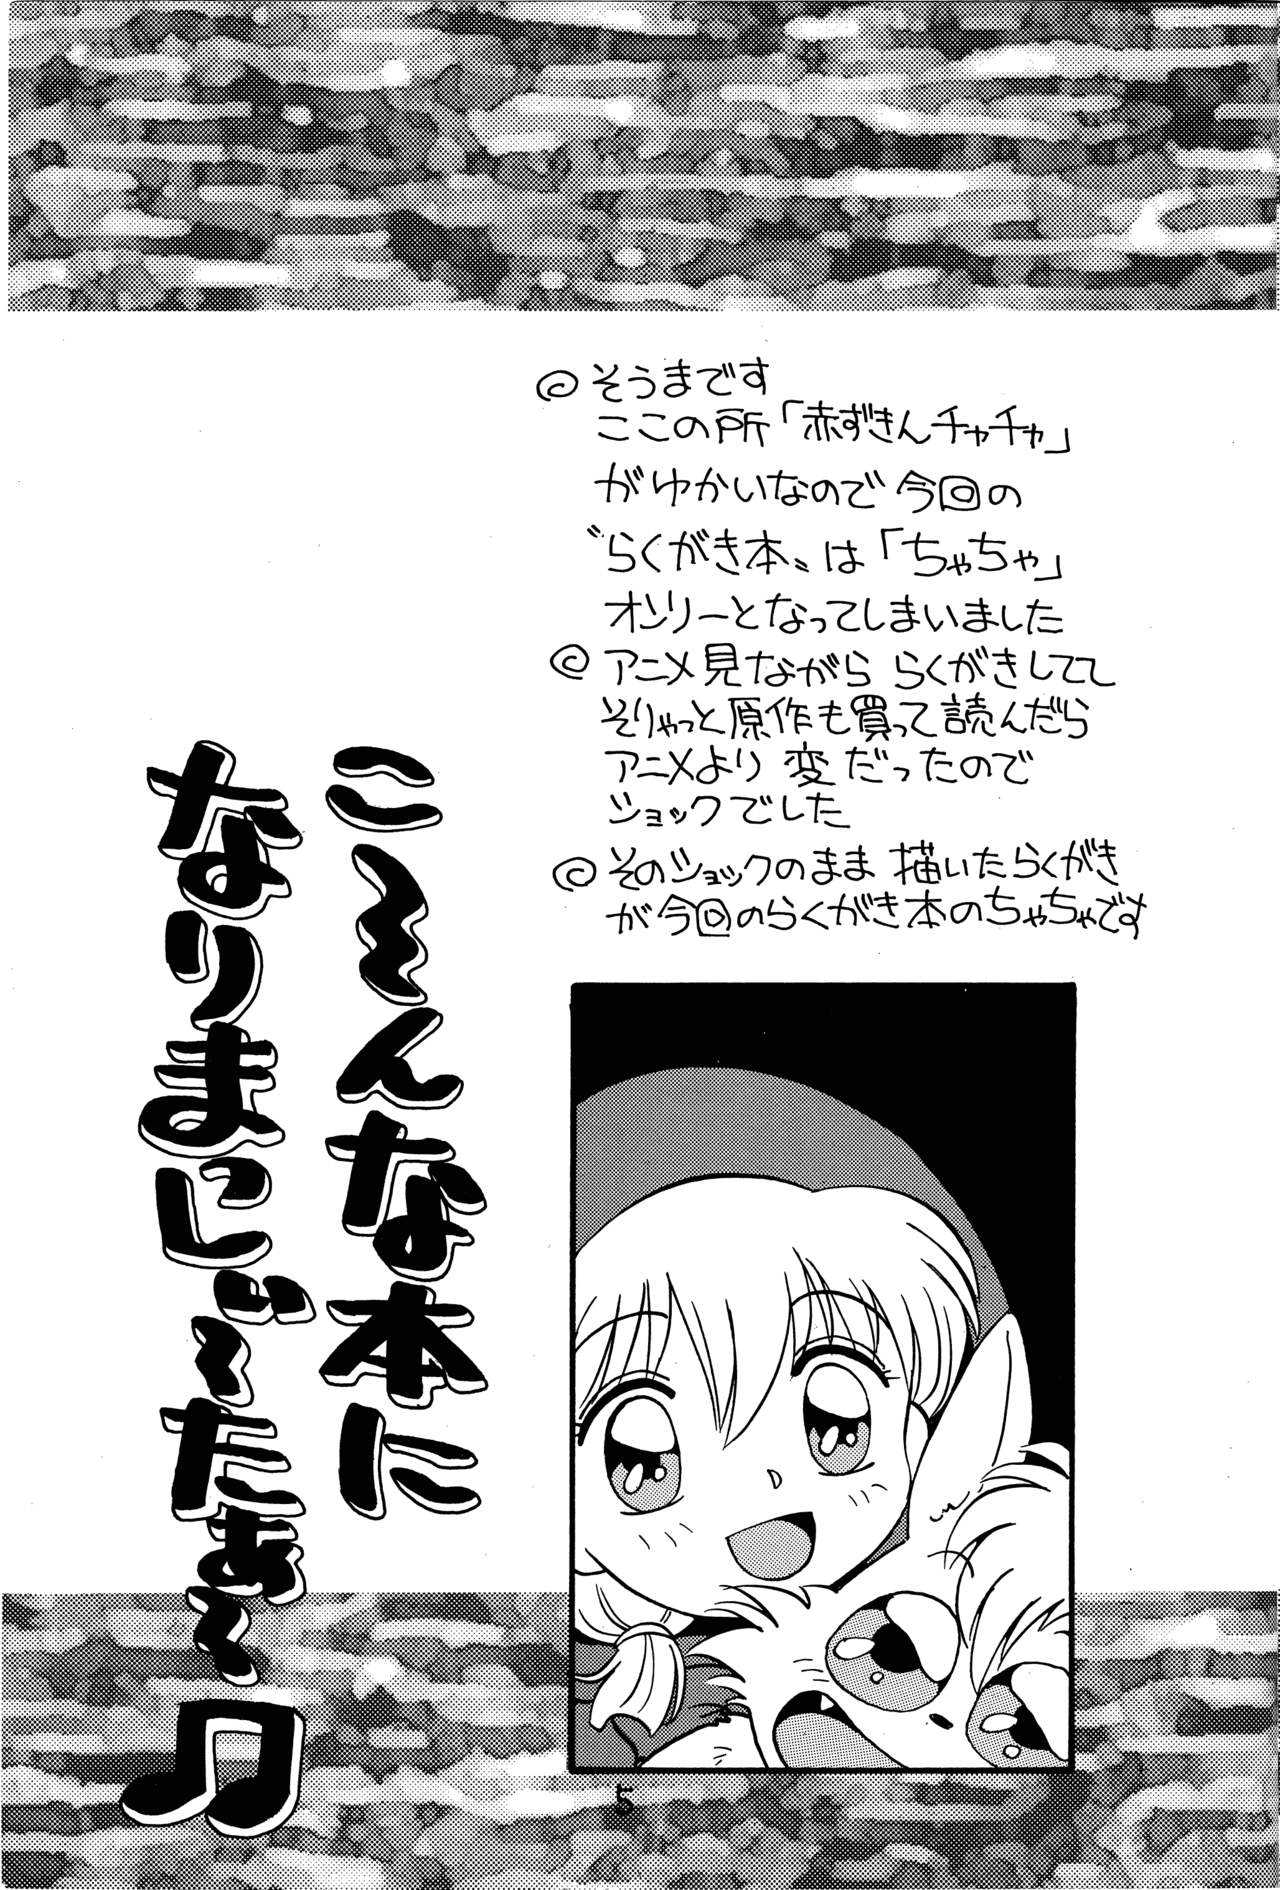 ◎そうまです
ここの所「赤ずきんチャチャ」
がゆかいなので今回の
〝らくがき本〟は「ちゃちゃ」
オンリーとなってしまいました
◎アニメ見ながら らくがきしてて
そりゃっと原作も買って読んだら
アニメより変だったので
ショックでした
◎そのショックのまま描いたらくがき
が今回のらくがき本のちゃちゃです
こ〜んな本に
なりまにぃ〜たぁ〜♫
5